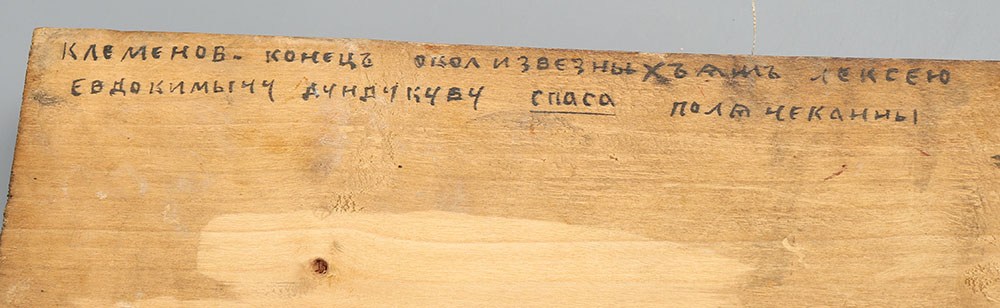 КЛЕМЕНОВ- КОНЕЦЪ ОКОЛ ИЗВЕЗНЫХЪ ЯМЪ ЛЕКСЕЮ
ЕВДОКИМЫЧУ ДУНДУКУВУ СПАСА ПОЛЯ ЧЕКАННЫ